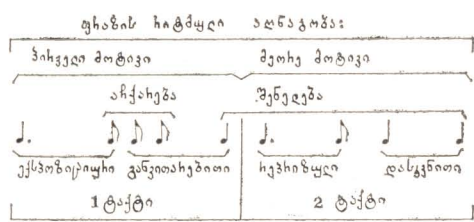 ფრაზის რიტმული აღნაგობა:
პირველი მოტივი მეორე მოტივი
აჩქარება შენელება
ექსპოზიციური განვითარებითი რეპრიზული დასკვნითი
1 ტაქტი 2 ტაქტი